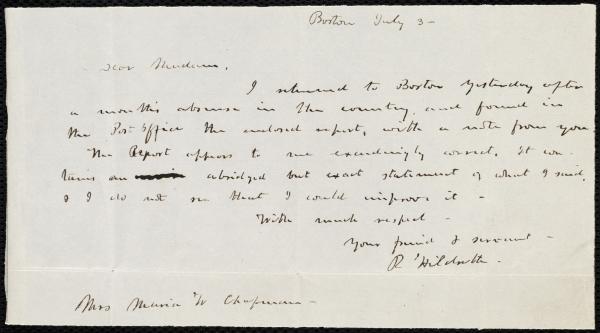 Boston July 3 -
Dear Madam,
I returned to Boston yesterday after
a months absence in the country, and found in
the Post Office the enclosed report, with a note from you
The Report appears to me exceedingly correct. It con-
tains an abridged but exact statement of what I said,
& I do not see that I could improve it -
With much respect -
Your friend & servant -
R Hildreth -
Mrs Maria W Chapman -